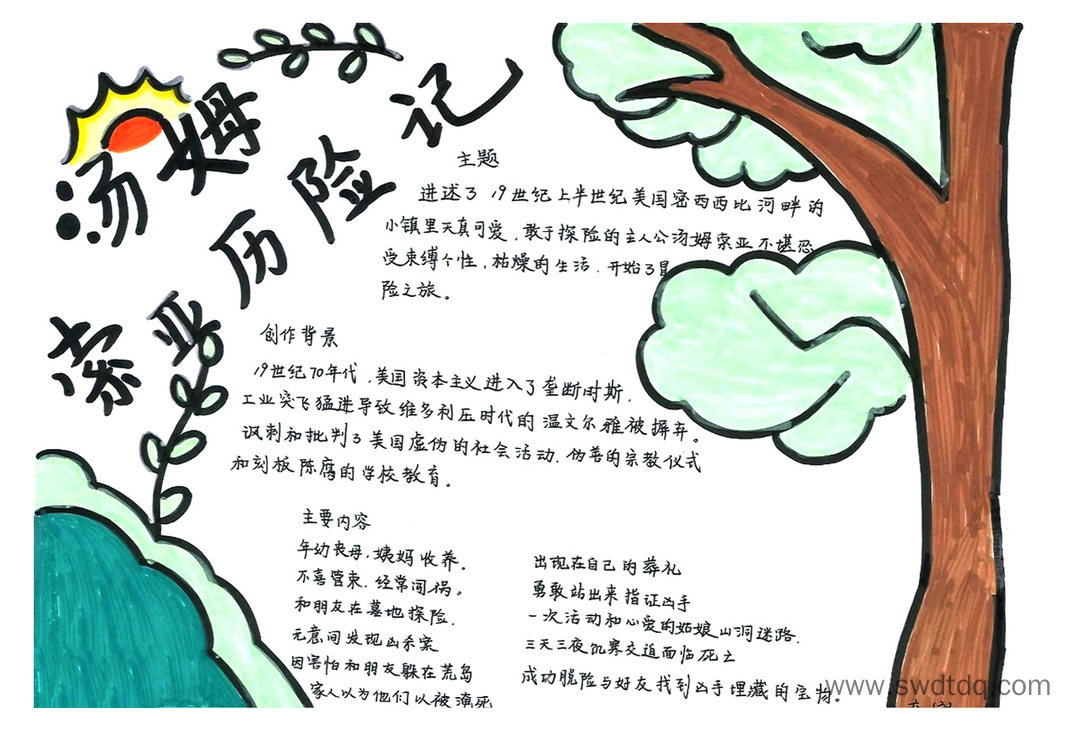 汤姆
索亚历险记
主题
进述了19世纪上半世纪美国密西西比河畔的
小镇里天真可爱，敢于探险的主人公汤姆索亚不堪忍
受束缚个性，枯燥的生活，开始了冒
险之旅。
创作背景
19世纪70年代，美国资本主义进入了垄断时斯，
工业突飞猛进导致维多利压时代的温文尔雅被摒弃。
讽刺和批判了美国虚伪的社会活动，伪善的宗教仪式
和刻板陈腐的学校教育。
主要内容
年幼丧母，姨妈收养。
不喜管束，经常闯祸。
和朋友在墓地探险，
元意间发现凶杀案
因害怕和朋友躲在荒岛
家人以为他们以被淹死
出现在自己的葬礼
勇敢站出来指证凶手
一次活动和心爱的姑娘山洞迷路，
三天三夜饥寒交迫面临死亡
成功脱险与好友找到凶手埋藏的宝物。
www.swdtdq.com